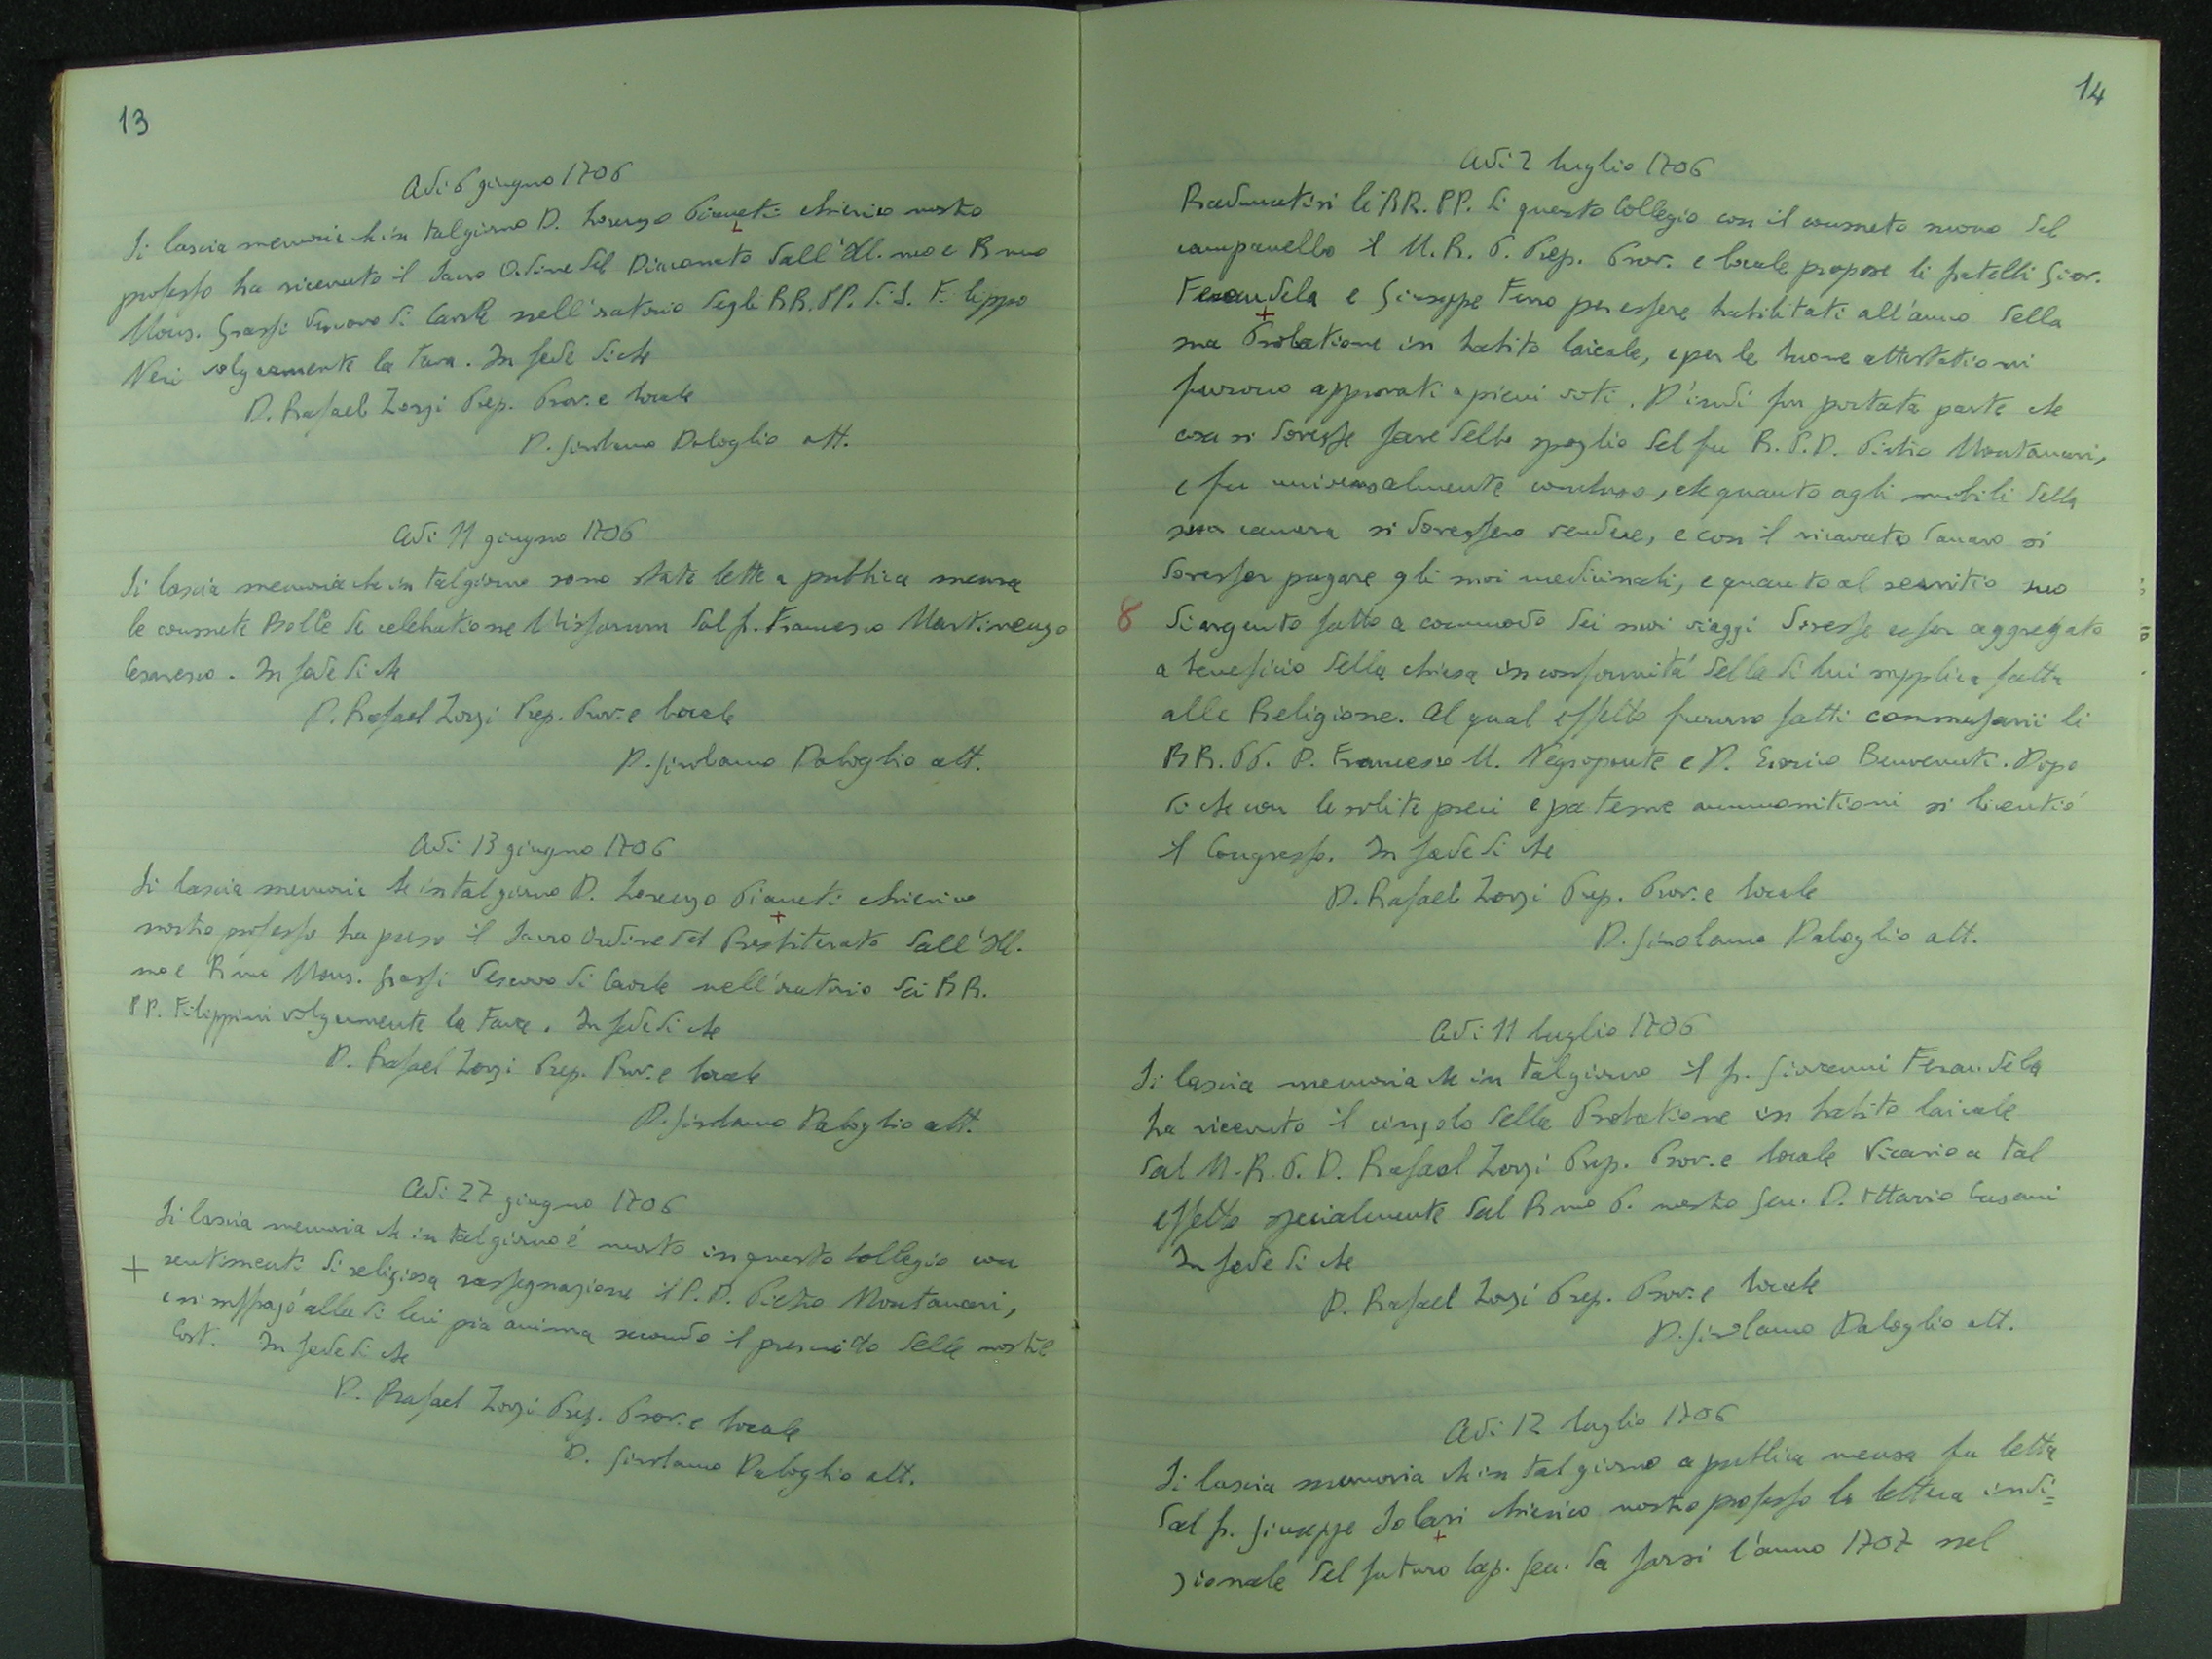 13
Adi 6 giugno 1706
Si lascia memoria che in tal giorno D. Lorenzo Pianeti chierico nostro
professo ha ricevuto il sacro Ordine del Diaconato dall'Ill.mo e R.mo
Mons. Grassi Vescovo di Caorle nell'oratorio degli RR. PP. di S. Filippo
Neri volgarmente la Fava. In fede di che
D. Rafael Zorzi Prep. Prov. e locale
D. Girolamo Daloglio att.
Adi 11 giugno 1706
Si lascia memoria che in tal giorno sono state lette a publica mensa
le consuete Bolle de celebratione Missarum dal fr. Francesco Martinengo
Cesaresco. In fede di che
D. Rafael Zorzi Prep. Prov. e locale
D. Girolamo Daloglio att.
Adi 13 giugno 1706
Si lascia memoria che in tal giorno D. Lorenzo Pianeti chierico
nostro professo ha preso il sacro Ordine del Presbiterato dall'Ill.
mo e R.mo Mons. Grassi Vescovo di Caorle nell'oratorio dei RR.
PP. Filippini volgarmente la Fava. In fede di che
D. Rafael Zorzi Prep. Prov. e locale
D. Girolamo Daloglio att.
Adi 27 giugno 1706
Si lascia memoria che in tal giorno é morto in questo Collegio con
+ sentimenti di religiosa rassegnazione il P. D. Pietro Montanari,
e si suffragó alla di lui pia anima secondo il prescritto delle nostre
Cost. In fede di che
D. Rafael Zorzi Prep. Prov. e locale
D. Girolamo Daloglio att.
14
Adi 2 luglio 1706
Radunatisi li RR. PP. di questo Collegio con il consueto suono del
campanello il M. R. P. Prep. Prov. e locale propose li fratelli Giov.
Ferandela e Giuseppe Ferro per essere habilitati all'anno della
sua Probatione in habito laicale, e per le buone attestationi
furono approvati a pieni voti. D'indi fu portata parte che
cosa si dovesse fare dello spoglio del fu R. P. D. Pietro Montanari,
e fu universalmente concluso, che quanto agli mobili della
sua camera si dovessero vendere, e con il ricavato danaro si
dovesser pagare gli suoi medicinali, e quanto al servitio suo
8 di argento fatto a commodo dei suoi viaggi dovesse esser aggregato
a beneficio della chiesa in conformitá della di lui supplica fatta
alla Religione. Al qual effetto furono fatti commissarii li
RR. PP. D. Francesco M. Negroponte e D. Enrico Benvenuti. Dopo
di che con le solite preci e paterne ammonitioni si licentió
il Congresso. In fede di che
D. Rafael Zorzi Prep. Prov. e locale
D. Girolamo Daloglio att.
Adi 11 luglio 1706
Si lascia memoria che in tal giorno il fr. Giovanni Ferandela
ha ricevuto il cingolo della Probatione in habito laicale
dal M. R. P. D. Rafael Zorzi Prep. Prov. e locale Vicario a tal
effetto specialmente dal R.mo P. nostro Gen. D. Ottavio Cusani
In fede di che
D. Rafael Zorzi Prep. Prov. e locale
D. Girolamo Daloglio att.
Adi 12 luglio 1706
Si lascia memoria che in tal giorno a publica mensa fu letta
dal fr. Giuseppe Solari chierico nostro professo la lettera indi=
zionale del futuro Cap. Gen. da farsi l'anno 1707 nel